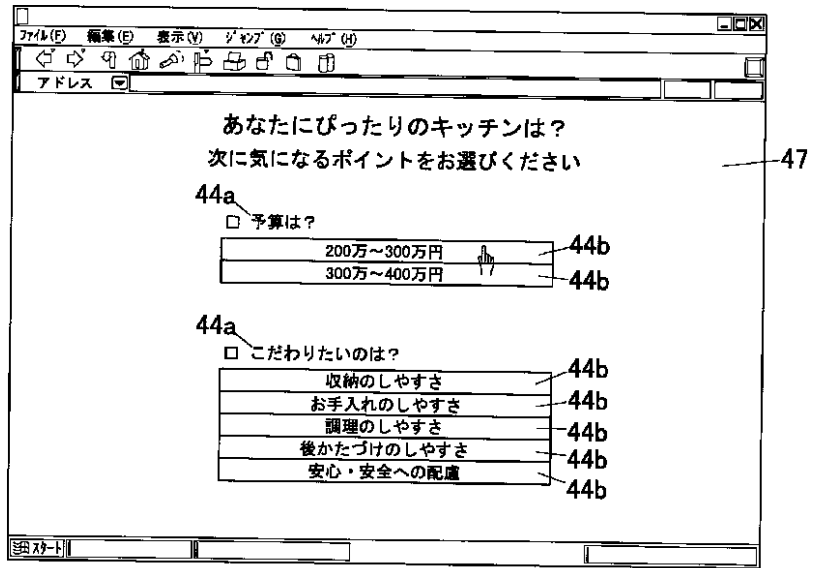 ファイル(F) 編集(E) 表示(V) ジャンプ(G) ヘルプ(H)
アドレス
あなたにぴったりのキッチンは？
次に気になるポイントをお選びください
47
44a
□ 予算は？
200万～300万円 44b
300万～400万円 44b
44a
□ こだわりたいのは？
収納のしやすさ 44b
お手入れのしやすさ 44b
調理のしやすさ 44b
後かたづけのしやすさ 44b
安心・安全への配慮 44b
スタート